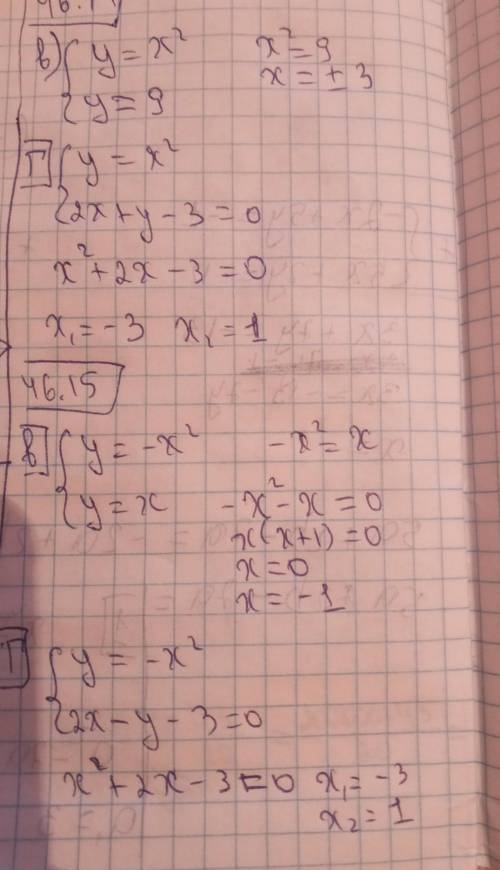 46.1
в) { y = x²
x² = 9
{ y = 9
x = ± 3
Г { y = x²
{ 2x + y - 3 = 0
x² + 2x - 3 = 0
x₁ = -3 x₂ = 1
46.15
в { y = -x²
-x² = x
{ y = x
-x² - x = 0
x(x+1) = 0
x = 0
x = -1
Г { y = -x²
{ 2x - y - 3 = 0
x² + 2x - 3 = 0 x₁ = -3
x₂ = 1